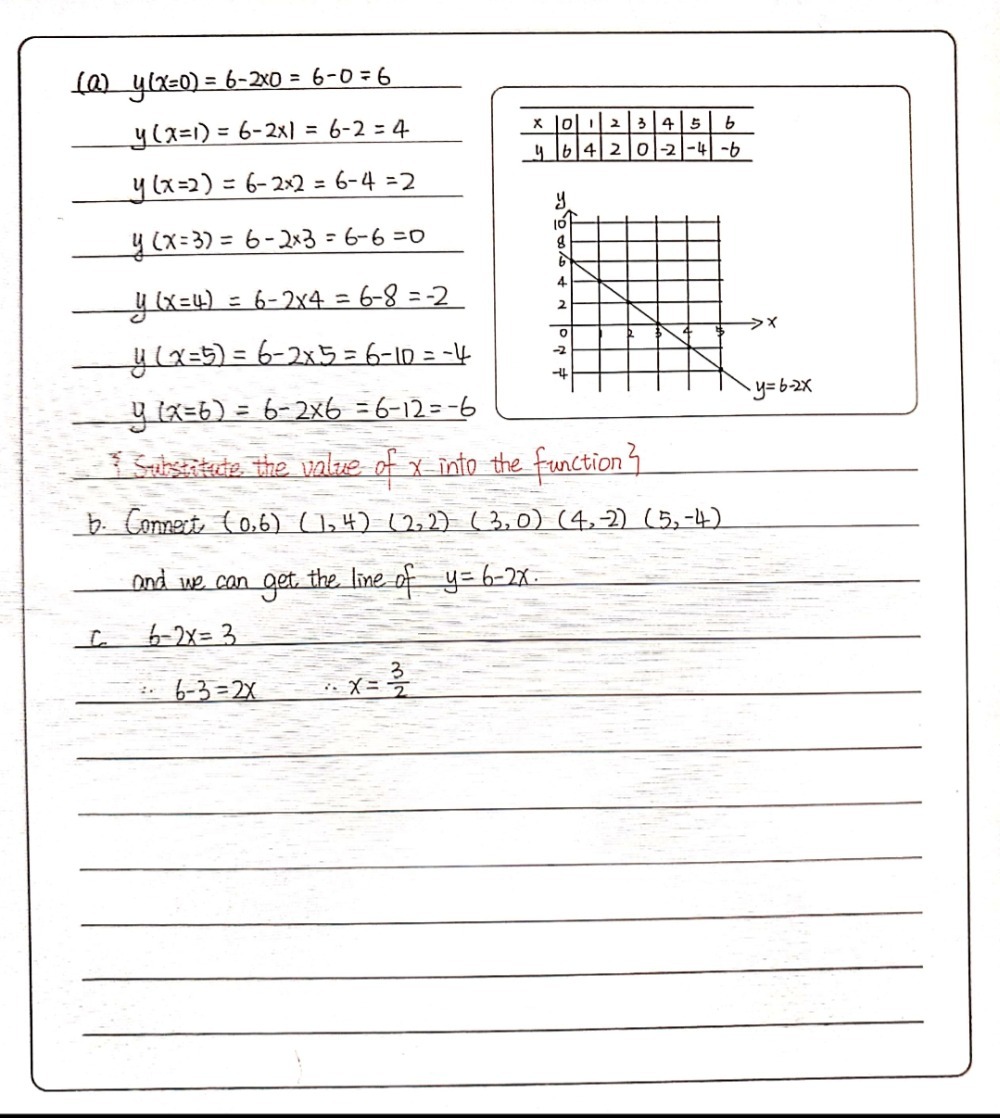 (a) y(x=0) = 6-2×0 = 6-0 = 6
y(x=1) = 6-2×1 = 6-2 = 4
y(x=2) = 6-2×2 = 6-4 = 2
y(x=3) = 6-2×3 = 6-6 = 0
y(x=4) = 6-2×4 = 6-8 = -2
y(x=5) = 6-2×5 = 6-10 = -4
y(x=6) = 6-2×6 = 6-12 = -6
x 0 1 2 3 4 5 6
y 6 4 2 0 -2 -4 -6
y
10
8
6
4
2
0 1 2 3 4 5 x
-2
-4
y=6-2x
{Substitute the value of x into the function}
b. Connect (0,6) (1,4) (2,2) (3,0) (4,-2) (5,-4)
and we can get the line of y=6-2x.
c. 6-2x=3
∵ 6-3=2x ∴ x=3/2